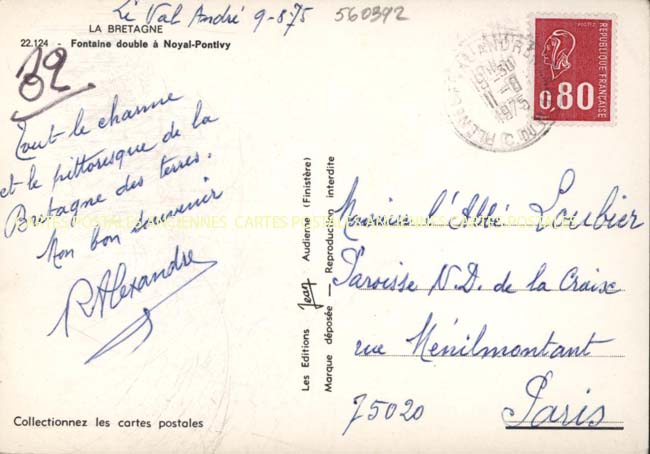 Le Val André 9-8-75 560392
LA BRETAGNE
22.124 - Fontaine double à Noyal-Pontivy
Tout le charme
et le pittoresque de la
Bretagne des terres.
Mon bon souvenir
R Alexandre
Collectionnez les cartes postales
Les Editions Jean Audierne (Finistère)
Marque déposée — Reproduction interdite
REPUBLIQUE FRANÇAISE
0,80
11 -8
1975
Monsieur l'Abbé Loubier
Paroisse N.D. de la Croix
rue Ménilmontant
75020 Paris
CARTES POSTALES ANCIENNES CARTES POSTALES ANCIENNES CARTES POSTALES